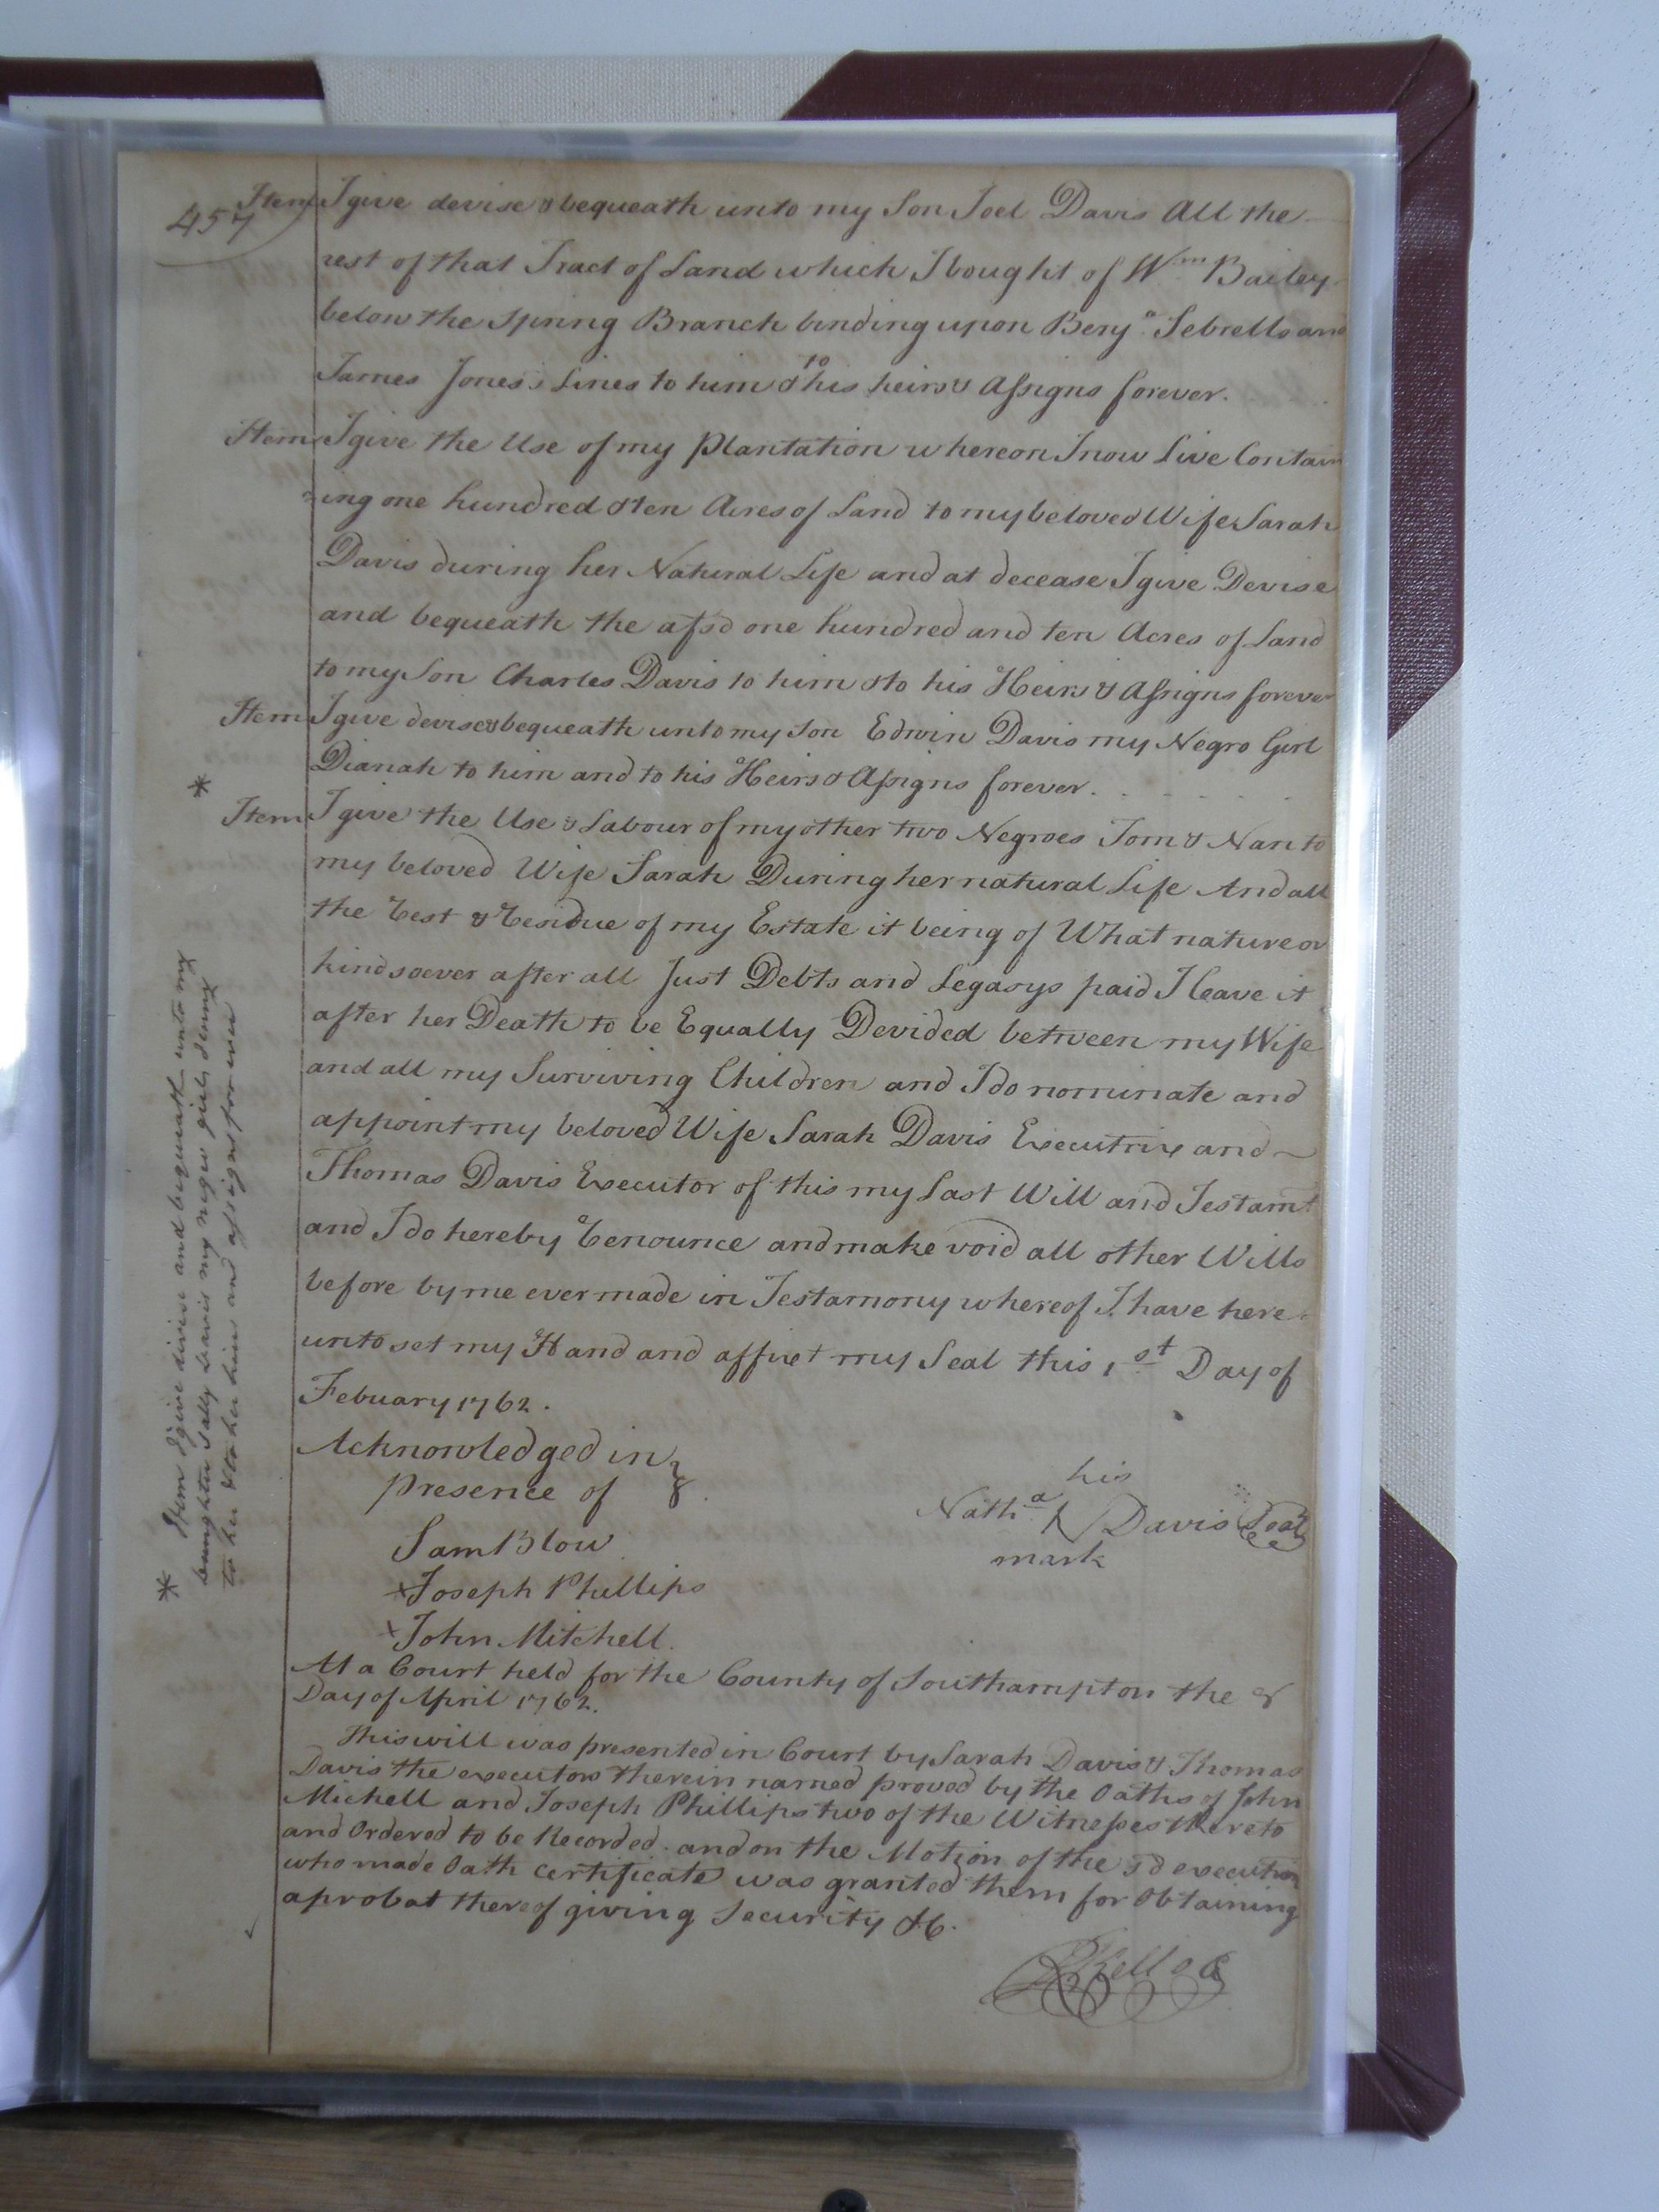 457
Item I give devise & bequeath unto my Son Joel Davis All the
rest of that Tract of Land which I bought of Wm Bailey
below the Spring Branch binding upon Benja Sebrells and
James Jones's Lines to him & to his heirs & Assigns forever.
Item I give the Use of my Plantation whereon I now Live Contain
=ing one hundred & ten Acres of Land to my beloved Wife Sarah
Davis during her Natural Life and at decease I give Devise
and bequeath the afsd one hundred and ten Acres of Land
to my Son Charles Davis to him & to his Heirs & Assigns forever
Item I give devise & bequeath unto my Son Edwin Davis my Negro Girl
Dianah to him and to his Heirs & Assigns forever.
*
Item I give the Use & Labour of my other two Negroes Tom & Nan to
my beloved Wife Sarah During her natural Life And all
the Rest & Residue of my Estate it being of What nature or
kindsoever after all Just Debts and Legasys paid I leave it
after her Death to be Equally Devided between my Wife
and all my Surviving Children and I do nominate and
appoint my beloved Wife Sarah Davis Executrix and
Thomas Davis Executor of this my Last Will and Testamt
and I do hereby Renounce and make void all other Wills
before by me ever made in Testamony whereof I have here
unto set my Hand and affixt my Seal this 1st Day of
Febuary 1762.
Acknowledged in
presence of
Sam Blow
Joseph Phillips
John Mitchell.
his
Natha N Davis Seal
mark
* Item I give divise and bequeath unto my
daughter Sally Davis my negro girl Jenny
to her & to her heirs and assigns for ever
At a Court held for the County of Southampton the 8
Day of April 1762.
This will was presented in Court by Sarah Davis & Thomas
Davis the executors therein named proved by the Oaths of John
Michell and Joseph Phillips two of the Witnesses thereto
and Ordered to be Recorded. and on the Motion of the sd executors
who made Oath certificate was granted them for Obtaining
a probat thereof giving Security &c.